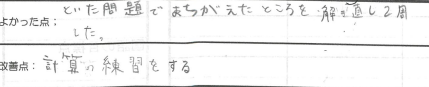 といた問題でまちがえたところを解き直し2周
よかった点：
した。
改善点：計算の練習をする